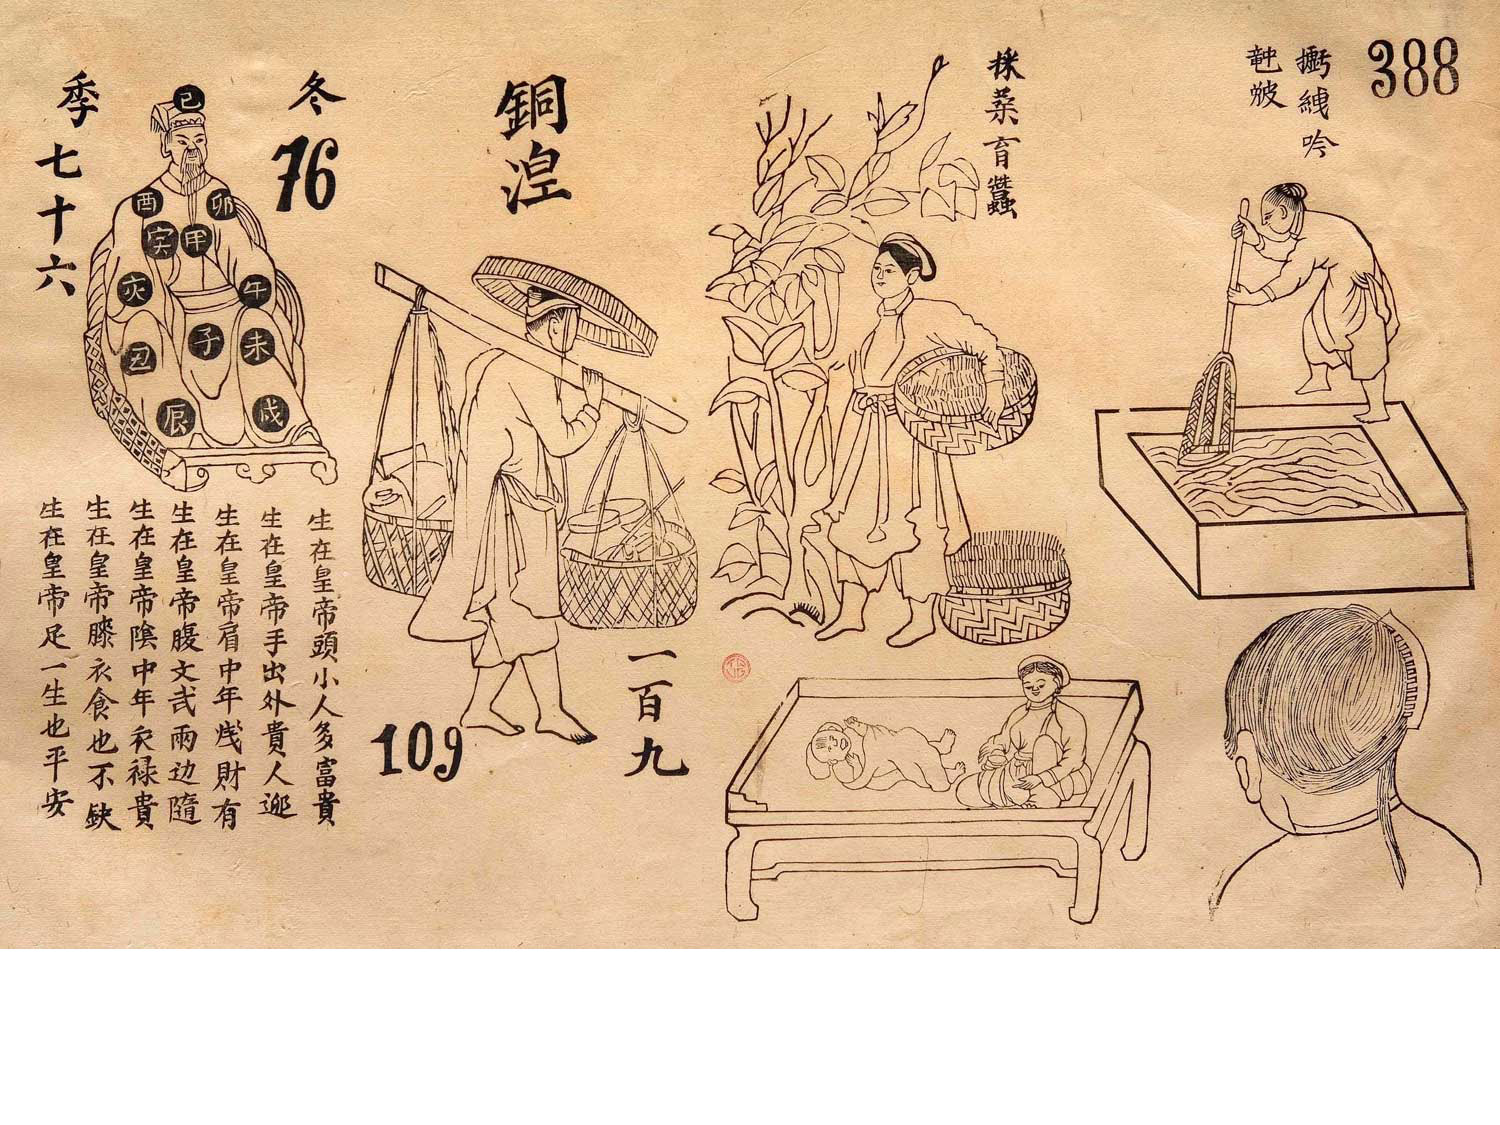 388
竜皮
採桑育蠶
銅湟
一百九
109
冬
76
季七十六
巳
酉
卯
寅
甲
亥
午
丑
子
未
辰
戌
生在皇帝頭小人多富貴
生在皇帝手出外貴人迎
生在皇帝肩中年戋財有
生在皇帝腹文武兩边隨
生在皇帝陰中年衣禄貴
生在皇帝膝衣食也不缺
生在皇帝足一生也平安